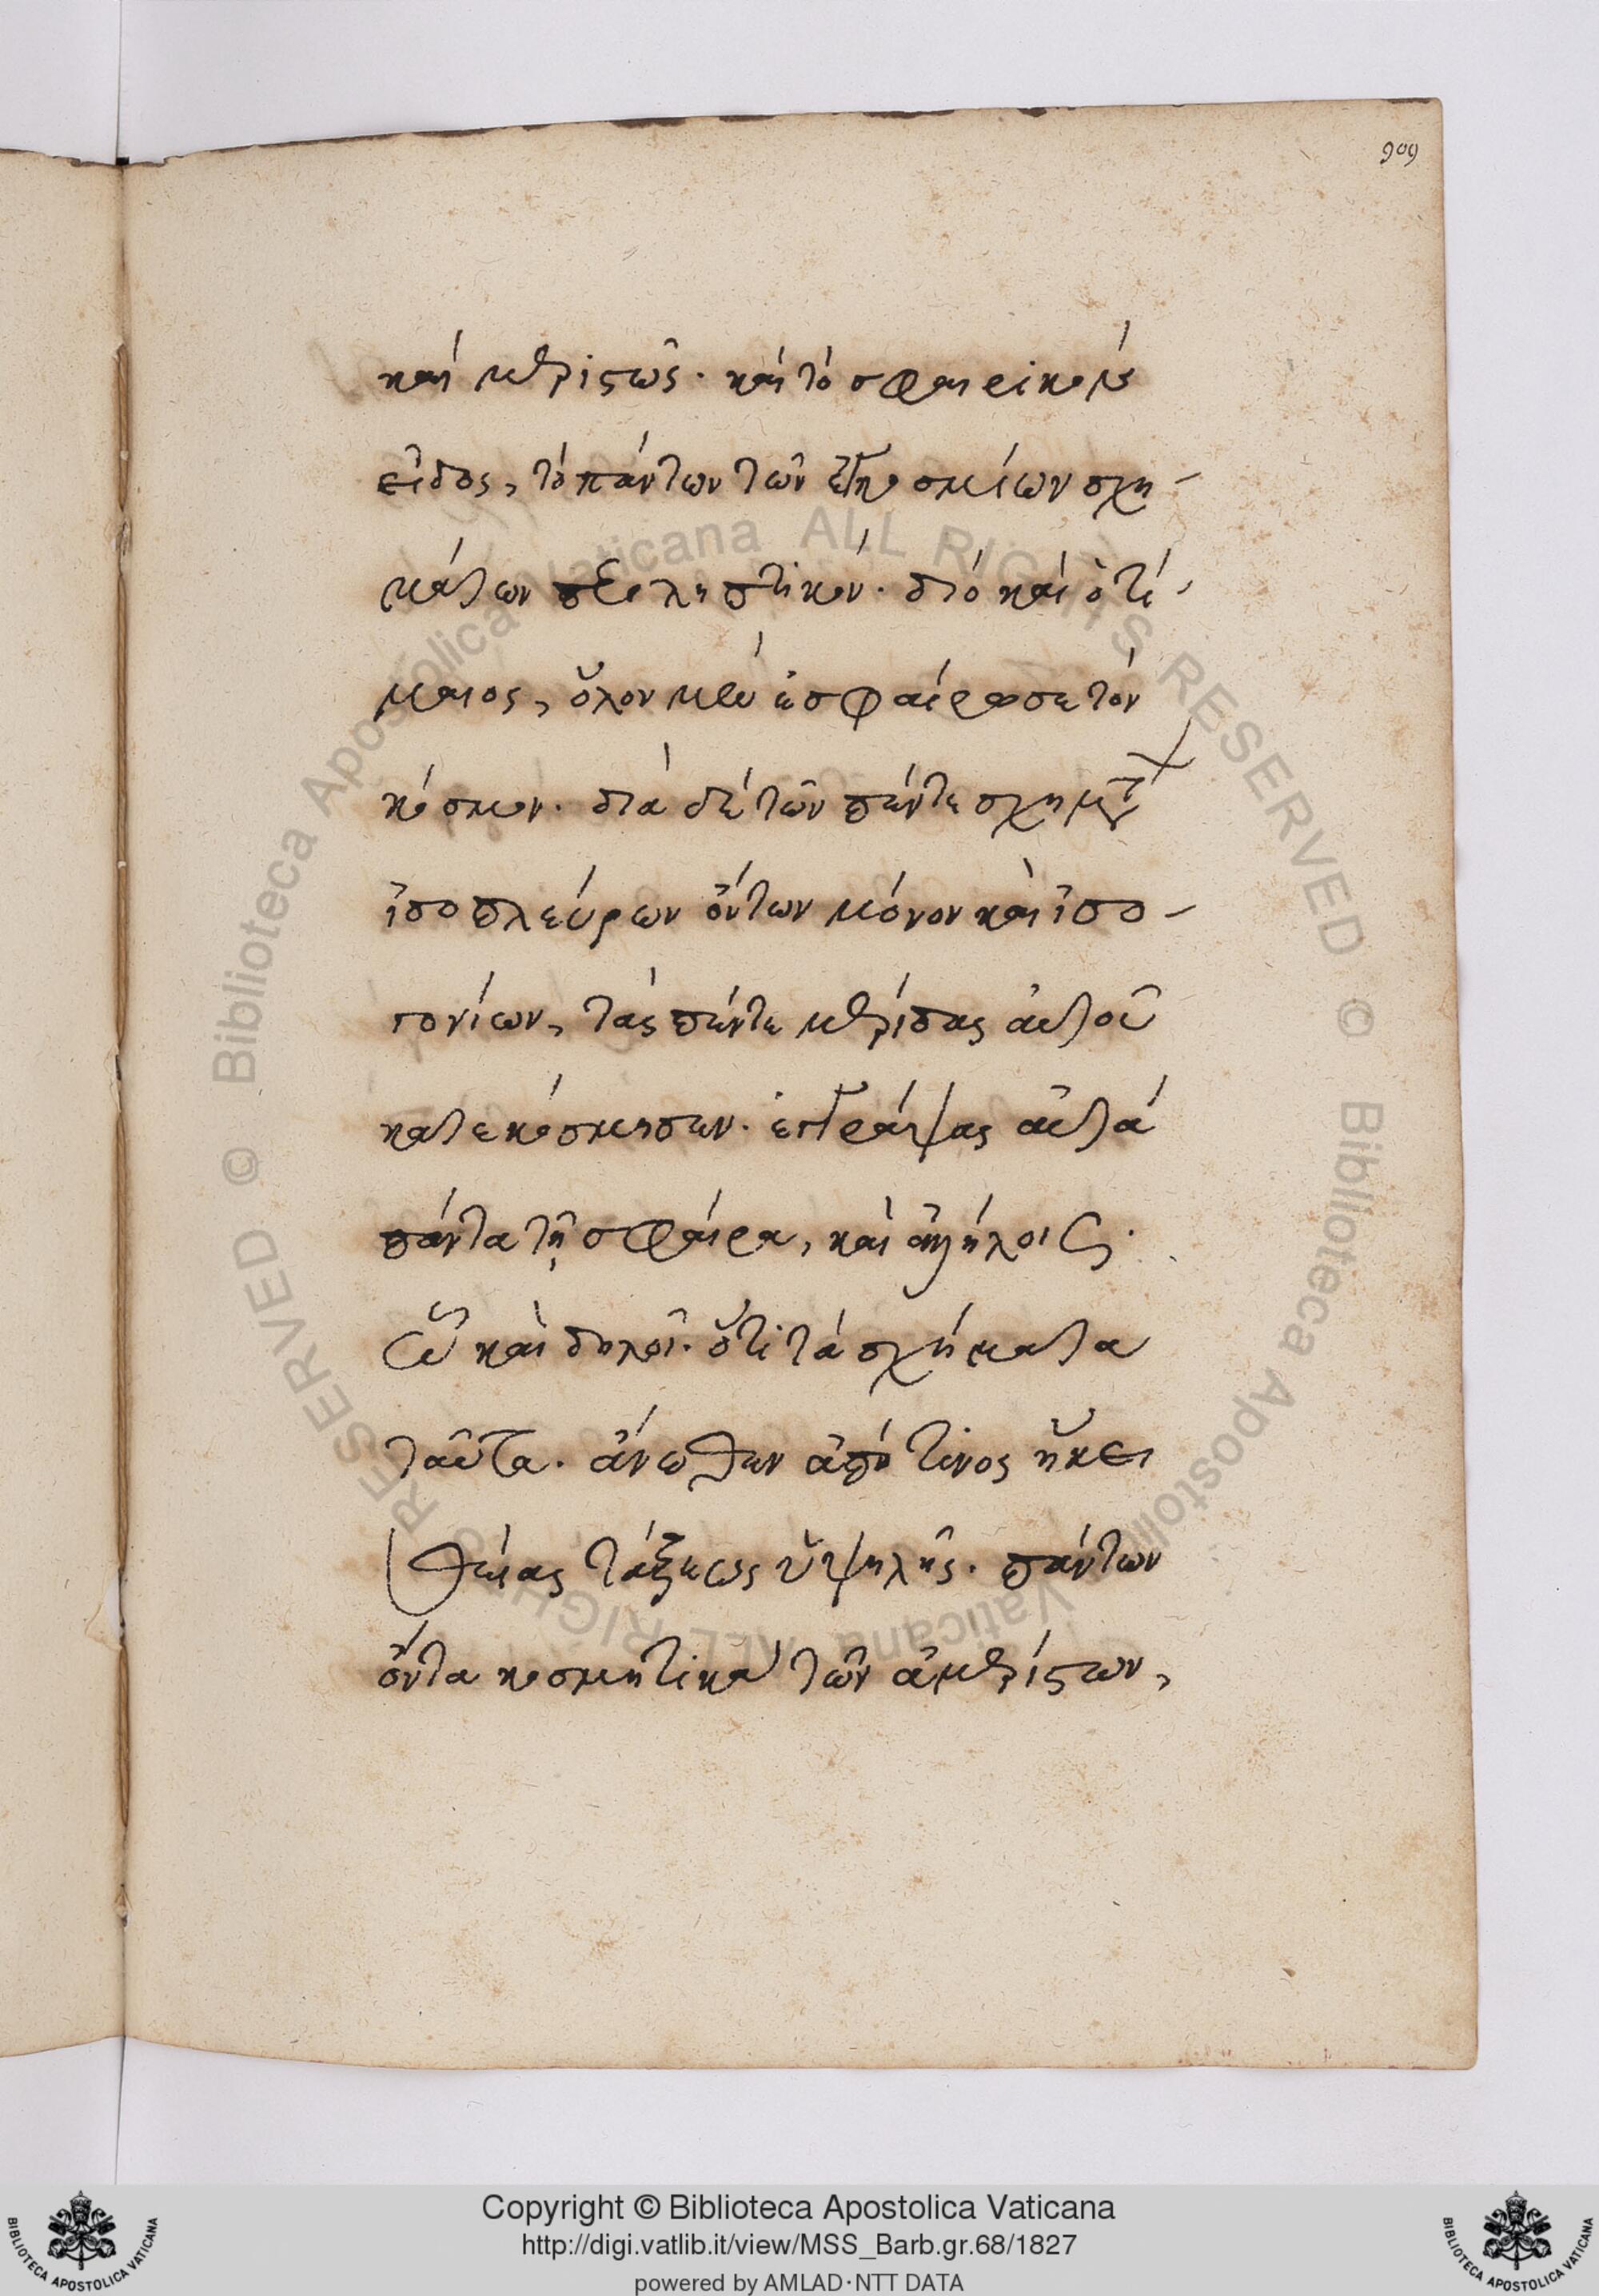 909
καὶ μεριστῶς· καὶ τὸ σφαιρικὸν
εἶδος, τὸ πάντων τῶν ἐγκοσμίων σχη-
μάτων περιληπτικόν· διὸ καὶ ὁ τί-
μαιος, ὅλον μὲν ἐσφαίρωσε τὸν
κόσμον· διὰ δὲ τῶν πέντε σχημάτων
ἰσοπλεύρων ὄντων μόνον καὶ ἰσο-
γονίων, τὰς πέντε μερίδας αὐτοῦ
κατεκόσμησεν· ἐγγράψας αὐτὰ
πάντα τῇ σφαίρα, καὶ ἀλλήλοις·
ᾧ καὶ δηλοῖ· ὅτι τὰ σχήματα
ταῦτα· ἄνωθεν ἀπό τινος ἥκει
θείας τάξεως ὑψηλῆς· πάντων
ὄντα κοσμητικὰ τῶν ἀμερίστων,
Biblioteca Apostolica Vaticana ALL RIGHTS RESERVED ©
Biblioteca Apostolica Vaticana ALL RIGHTS RESERVED ©
Copyright © Biblioteca Apostolica Vaticana
http://digi.vatlib.it/view/MSS_Barb.gr.68/1827
powered by AMLAD·NTT DATA
BIBLIOTECA APOSTOLICA VATICANA
BIBLIOTECA APOSTOLICA VATICANA